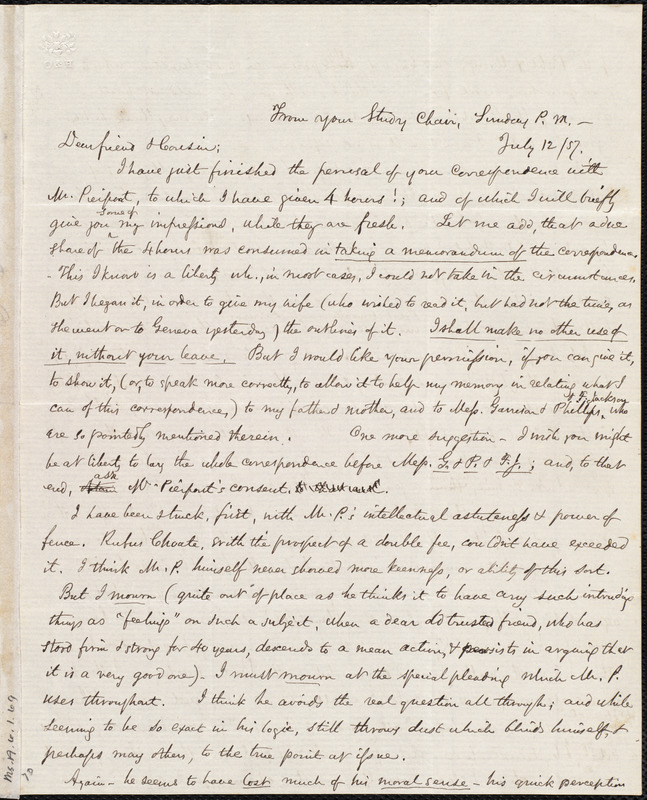 From your Study Chair, Sunday P.M. –
July 12/57.
Dear friend & Cousin;
I have just finished the perusal of your correspondence with
Mr. Pierpont, to which I have given 4 hours!; and of which I will briefly
give you some of my impressions, while they are fresh. Let me add, that a due
share of the 4 hours was consumed in taking a memorandum of the correspondence.
– This I know is a liberty wh., in most cases, I could not take in the circumstances.
But I began it, in order to give my wife (who wished to read it, but had not the time, as
she went on to Geneva yesterday) the outlines of it. I shall make no other use of
it, without your leave. But I would like your permission, if you can give it,
to show it, (or, to speak more correctly, to allow it to help my memory in relating what I
can of this correspondence,) to my father & mother, and to Mess. Garrison & Phillips, & F. Jackson, who
are so pointedly mentioned therein. One more suggestion – I wish you might
be at liberty to lay the whole correspondence before Mess. G. & P. & F.J.; and, to that
end, ask Mr. Pierpont's consent.
I have been struck, first, with Mr. P.'s intellectual astuteness & power of
fence. Rufus Choate, with the prospect of a double fee, couldn't have exceeded
it. I think Mr. P. himself never showed more keenness, or ability of this sort.
But I mourn (quite out of place as he thinks it to have any such intruding
things as "feelings" on such a subject, when a dear old trusted friend, who has
stood firm & strong for 40 years, descends to a mean action, & persists in arguing that
it is a very good one) – I must mourn at the special pleading which Mr. P.
uses throughout. I think he avoids the real question all through; and while
seeming to be so exact in his logic, still throws dust which blinds himself, &
perhaps may others, to the true point at issue.
Again – he seems to have lost much of his moral sense – his quick perception
Ms. A. 6. 1. 69